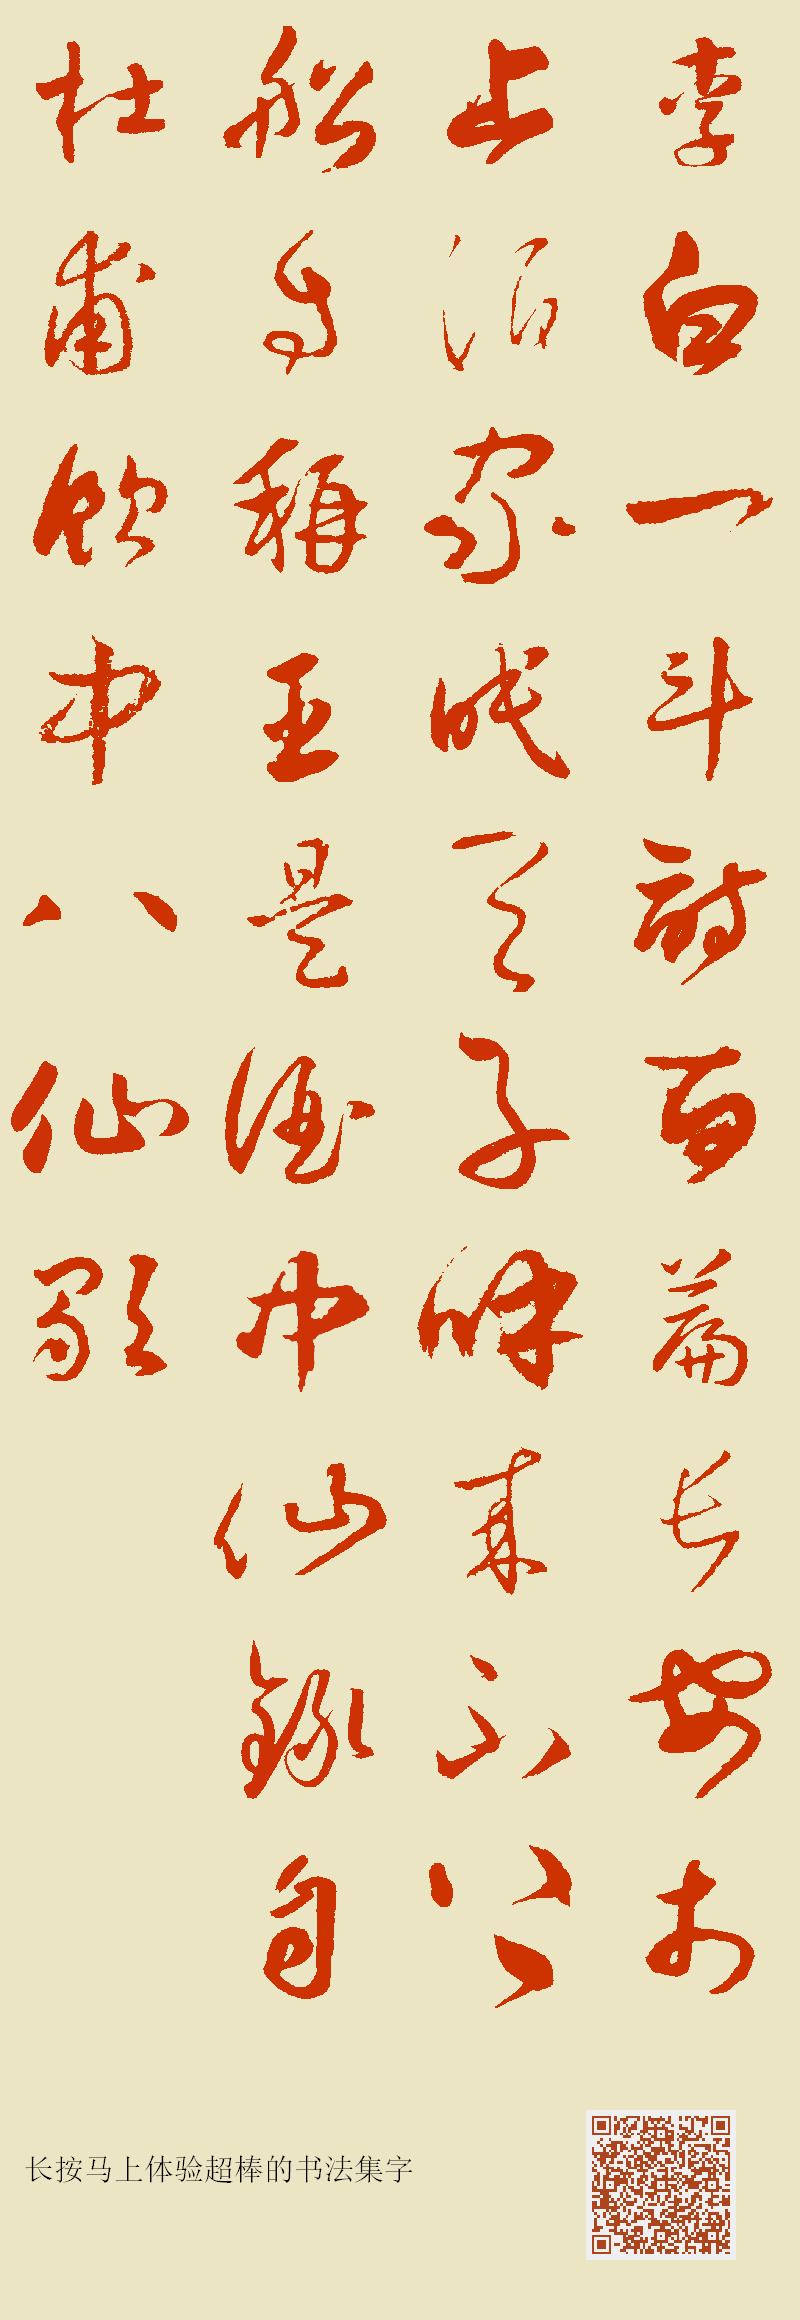 李白一斗诗百篇长安市
上酒家眠天子呼来不上
船自稱臣是酒中仙錄自
杜甫飲中八仙歌
长按马上体验超棒的书法集字